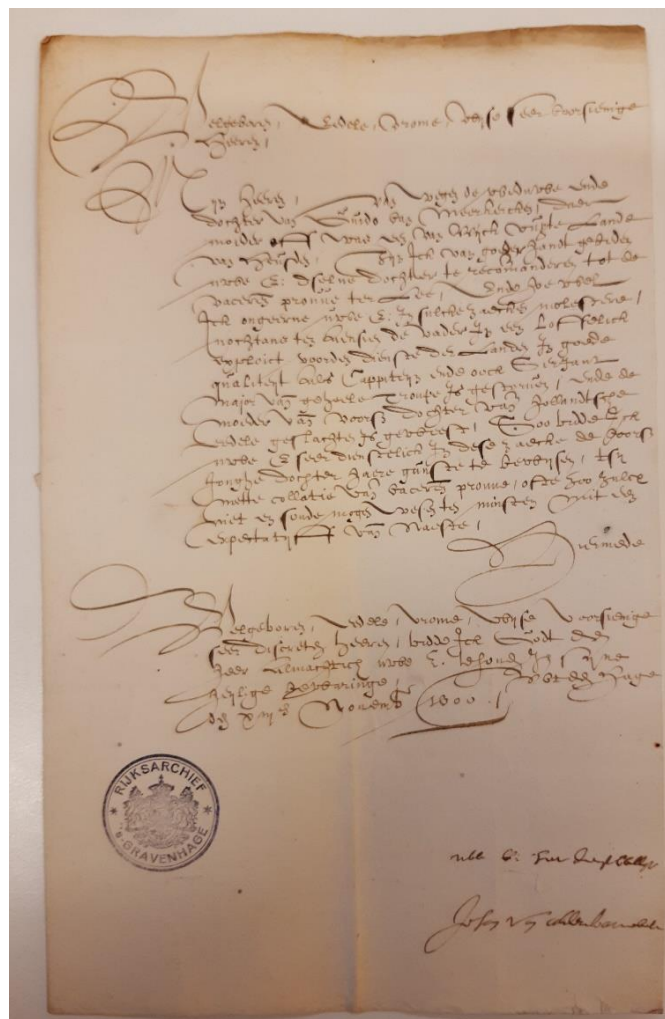 Welgeboren, Eedele, Vrome, Wijse seer voorsienige
Heeren,
Mijn Heeren, Van wegen de weduwe ende
dochter van Guido van Meerheicken, daer
moeder aff was een van Wijck uuyte Lande
van Heusden, Ben ick van goeder handt gebeden
uwe E. dselve dochter te recomanderen tot de
vacerende prouve ter Lee, Ende hoewel
Ick ongeerne uwe E. in sulcke zaecken molestere,
nochtans ten aensien de vader in een Loffelich
exploict voorden dienste der Landen in goede
qualiteyt als Cappiteyn ende oock Serjant
Major van geheele trouppe is gestorven, ende de
moeder van voorsz dochter van Hollandtsche
eedele geslachte is geweest, Soo bidde ick
uwe E seer dienstelick in dese zaecke de voorsz
jonghe dochter haere gunste te bewijsen, tsy
mette collatie van vacerende prouve, ofte zoo zulcx
niet en soude mogen wesen ten minsten mit een
expectatijff van naeste,
Hiermede
Welgeboren, Eedele, Vrome, Wijse Voorsienige
seer discrete Heeren, bidde Ick Godt den
Heer Almachtich uwe E. te houden in Zijne
heylige bewaringe, Wt den Hage
den XIIIen Novemb 1600.
RIJKSARCHIEF
'S-GRAVENHAGE
uwe E.
Johan van Oldenbarnevelt